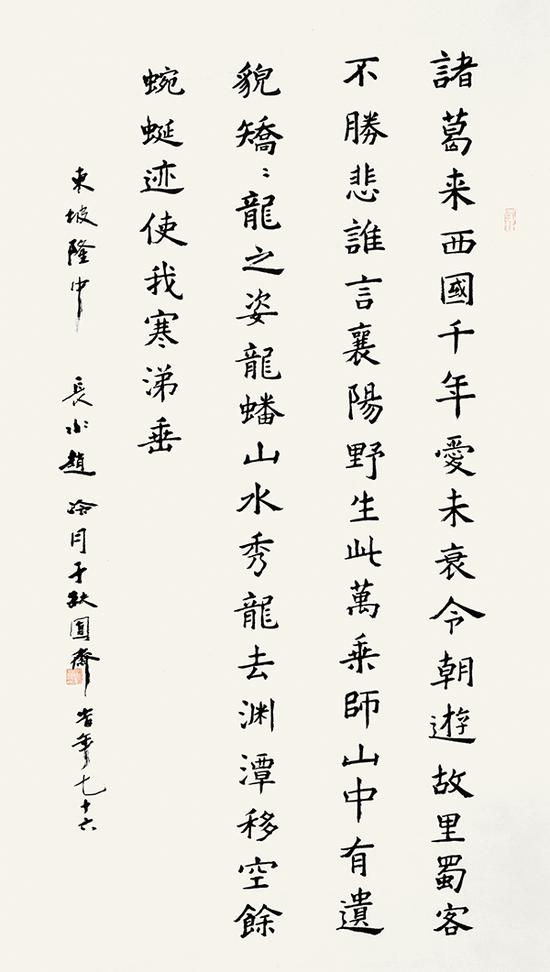 諸葛来西國千年愛未衰令朝遊故里蜀客
不勝悲誰言襄陽野生此萬乘師山中有遺
貌矯〻龍之姿龍蟠山水秀龍去渊潭移空餘
蜿蜒迹使我寒涕垂
東坡隆中 長水趙冷月于缺圓齋旹年七十六